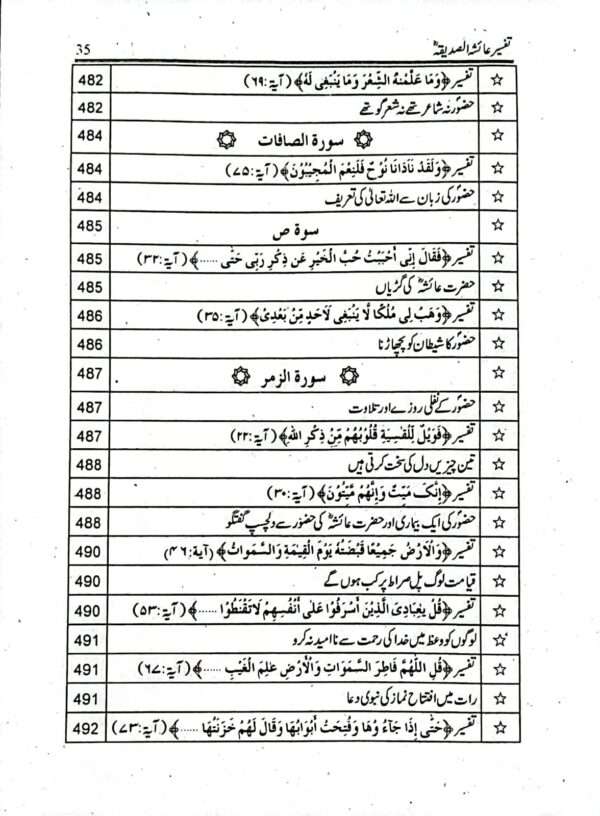 تفسیر عائشہ الصدیقہؓ 35
☆ تفسیر ﴿وَمَا عَلَّمْنٰهُ الشِّعْرَ وَمَا يَنْبَغِى لَهُ﴾ (آیۃ:۶۹) 482
☆ حضورؐ نہ شاعر تھے نہ شعر گو تھے 482
☆ سورة الصافات 484
☆ تفسیر ﴿وَلَقَدْ نَادَانَا نُوْحٌ فَلَنِعْمَ الْمُجِيْبُوْنَ﴾ (آیۃ:۷۵) 484
☆ حضورؐ کی زبان سے اللہ تعالیٰ کی تعریف 484
☆ سوة ص 485
☆ تفسیر ﴿فَقَالَ اِنِّى اَحْبَبْتُ حُبَّ الْخَيْرِ عَن ذِكْرِ رَبِّى حَتّٰى ......﴾ (آیۃ:۳۲) 485
☆ حضرت عائشہؓ کی گڑیاں 485
☆ تفسیر ﴿وَهَبْ لِى مُلْكًا لَّا يَنْبَغِى لِاَحَدٍ مِّنْ بَعْدِىْ﴾ (آیۃ:۳۵) 486
☆ حضورؐ کا شیطان کو پچھاڑنا 486
☆ سورة الزمر 487
☆ حضورؐ کے نفلی روزے اور تلاوت 487
☆ تفسیر ﴿فَوَيْلٌ لِّلْقٰسِيَةِ قُلُوْبُهُمْ مِّنْ ذِكْرِ اللهِ﴾ (آیۃ:۲۲) 487
☆ تین چیزیں دل کی سخت کرتی ہیں 488
☆ تفسیر ﴿اِنَّكَ مَيِّتٌ وَّاِنَّهُمْ مَّيِّتُوْنَ﴾ (آیۃ:۳۰) 488
☆ حضورؐ کی ایک بیماری اور حضرت عائشہؓ کی حضورؐ سے دلچسپ گفتگو 488
☆ تفسیر ﴿وَالْاَرْضُ جَمِيْعًا قَبْضَتُهُ يَوْمَ الْقِيٰمَةِ وَالسَّمٰوَاتُ﴾ (آیۃ:۴۶) 490
☆ قیامت لوگ پل صراط پر کب ہوں گے 490
☆ تفسیر ﴿قُلْ يٰعِبَادِىَ الَّذِيْنَ اَسْرَفُوْا عَلٰى اَنْفُسِهِمْ لَاتَقْنَطُوْا ......﴾ (آیۃ:۵۳) 490
☆ لوگوں کو وعظ میں خدا کی رحمت سے ناامید نہ کرو 491
☆ تفسیر ﴿قُلِ اللّٰهُمَّ فَاطِرَ السَّمٰوَاتِ وَالْاَرْضِ عٰلِمَ الْغَيْبِ ......﴾ (آیۃ:۶۷) 491
☆ رات میں افتتاح نماز کی نبوی دعا 491
☆ تفسیر ﴿حَتّٰى اِذَا جَآءُ وْهَا وَفُتِحَتْ اَبْوَابُهَا وَقَالَ لَهُمْ خَزَنَتُهَا ......﴾ (آیۃ:۷۳) 492